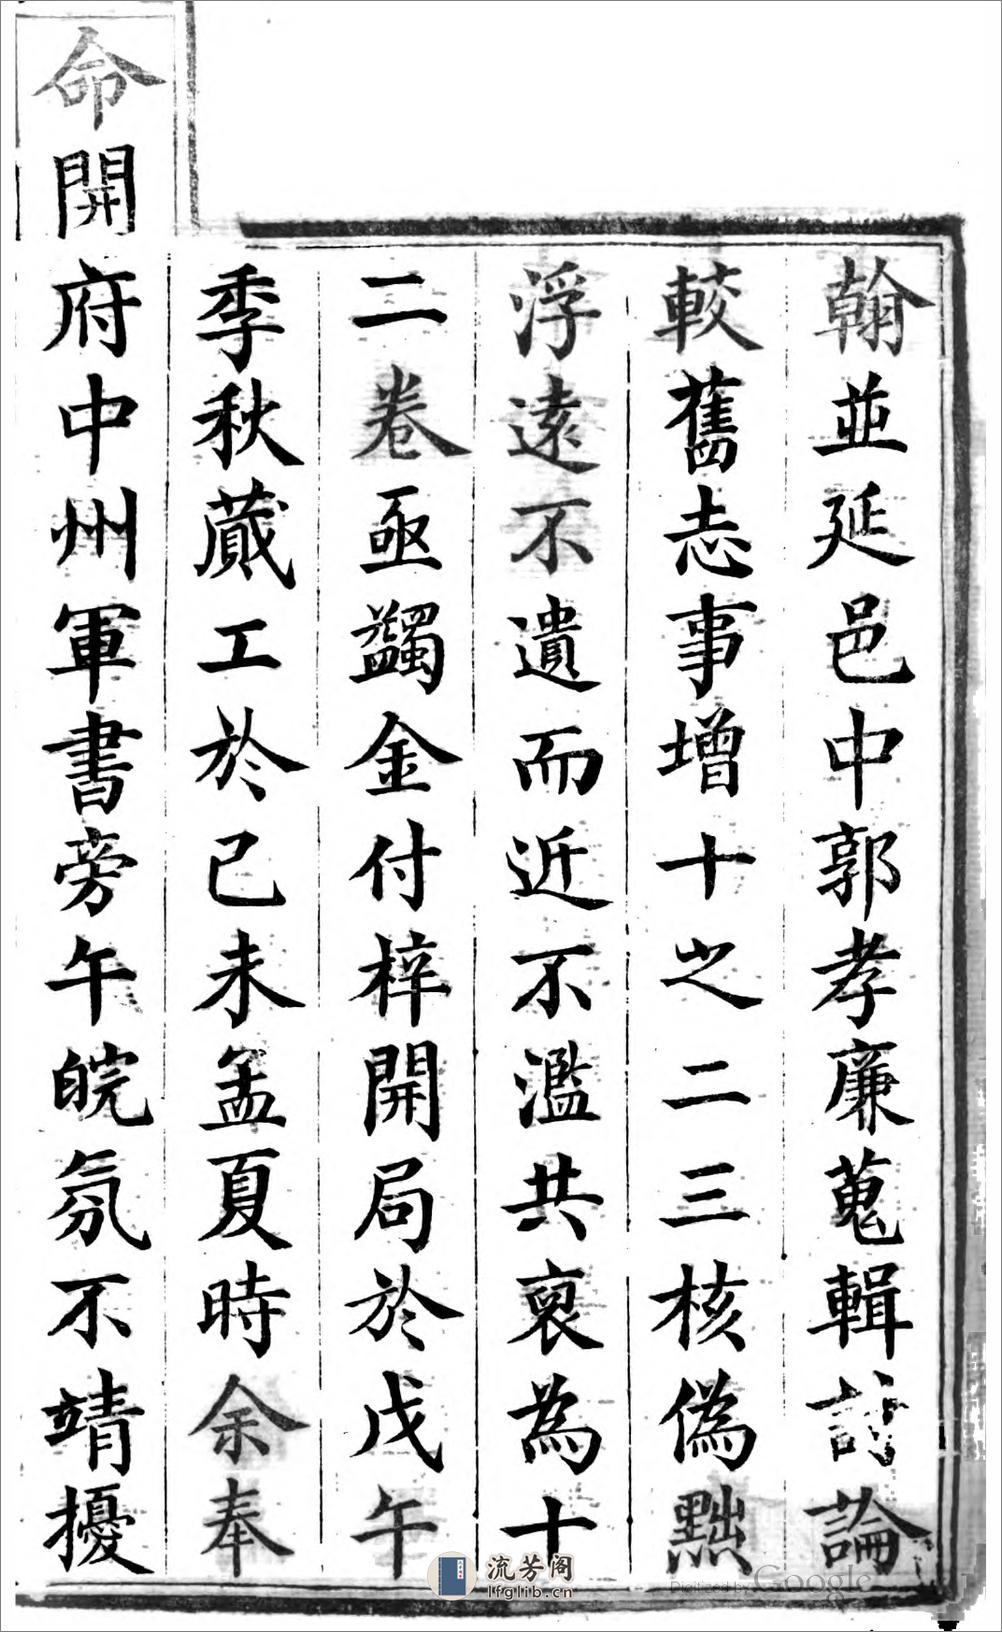 翰並延邑中郭孝廉蒐輯討論
較舊志事增十之二三核偽黜
浮遠不遺而近不濫共裒為十
二卷亟蠲金付梓開局於戊午
季秋蕆工於己未孟夏時余奉
命開府中州軍書旁午皖氛不靖擾
流芳阁
lfglib.cn
Digitized by Google